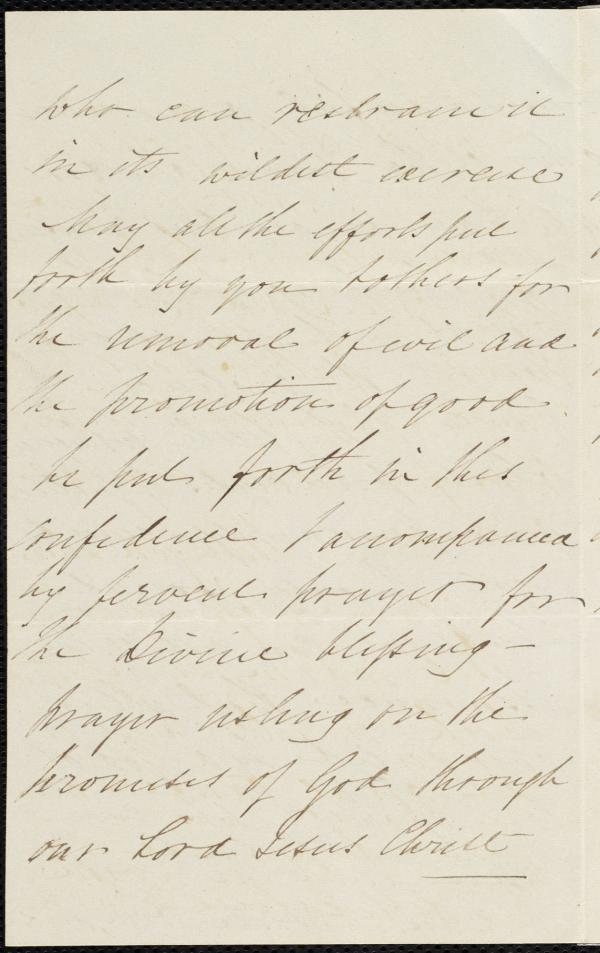 who can restrain it
in its wildest exercise
May all the efforts put
forth by you & others for
the removal of evil and
the promotion of good
be put forth in this
confidence & accompanied
by fervent prayer for
the Divine blessing –
prayer resting on the
promises of God through
our Lord Jesus Christ